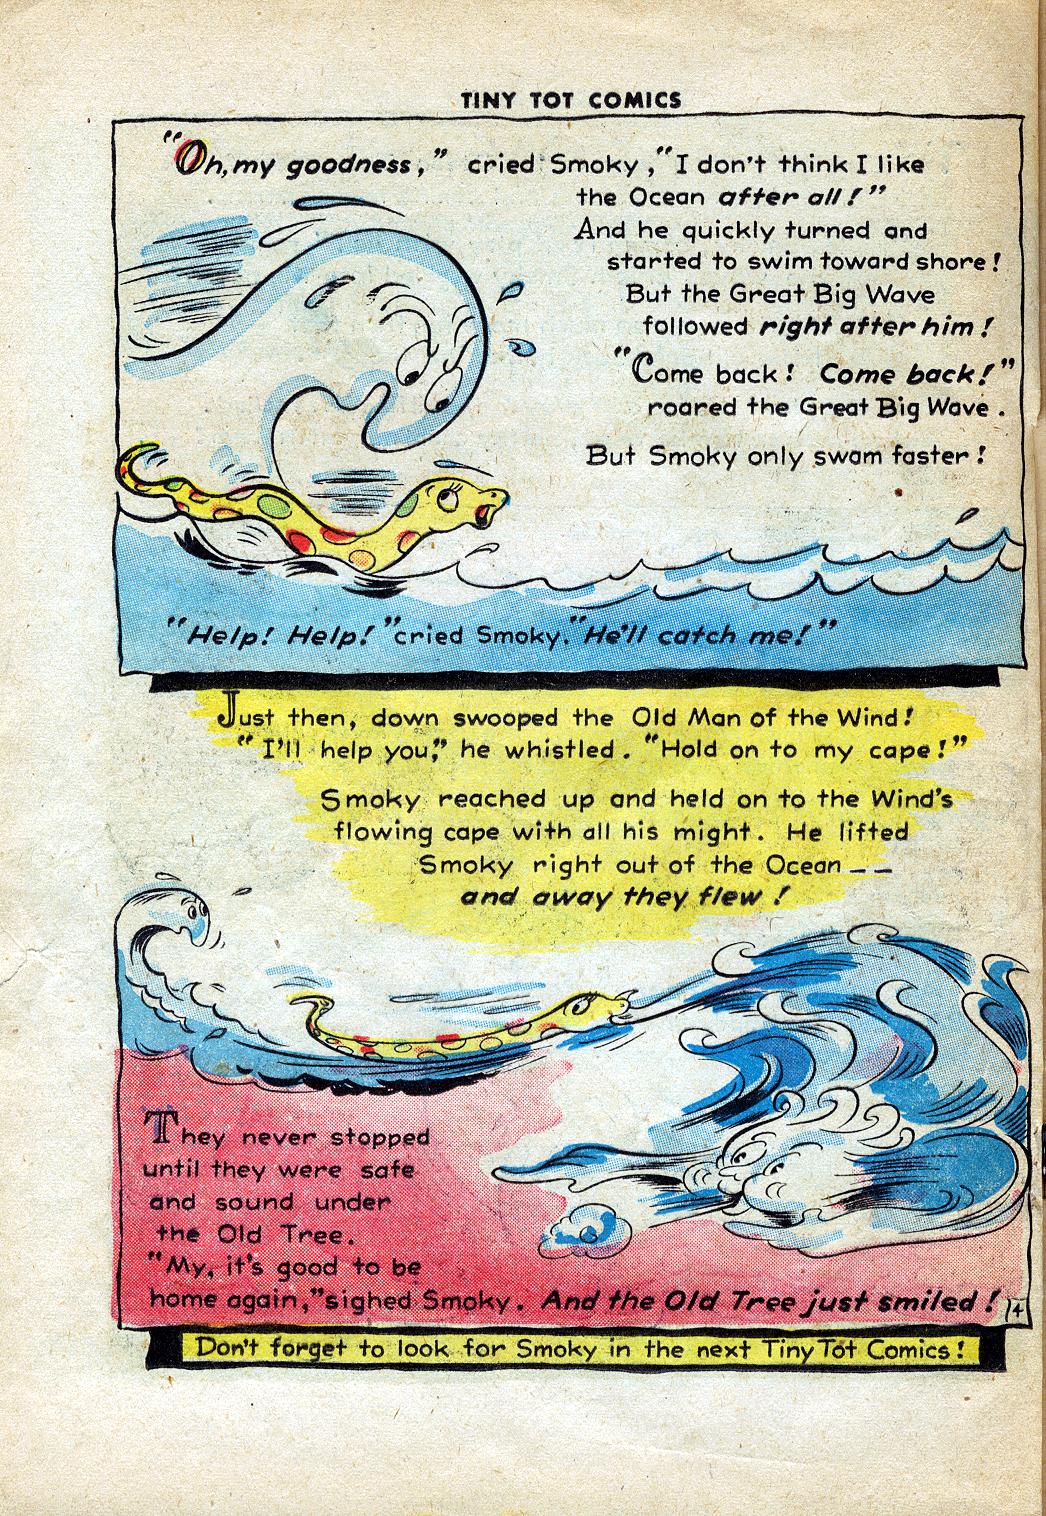 TINY TOT COMICS
"Oh, my goodness," cried Smoky, "I don't think I like
the Ocean after all!"
And he quickly turned and
started to swim toward shore!
But the Great Big Wave
followed right after him!
"Come back! Come back!"
roared the Great Big Wave.
But Smoky only swam faster!
"Help! Help!" cried Smoky. "He'll catch me!"
Just then, down swooped the Old Man of the Wind!
"I'll help you," he whistled. "Hold on to my cape!"
Smoky reached up and held on to the Wind's
flowing cape with all his might. He lifted
Smoky right out of the Ocean --
and away they flew!
They never stopped
until they were safe
and sound under
the Old Tree.
"My, it's good to be
home again," sighed Smoky. And the Old Tree just smiled!
4
Don't forget to look for Smoky in the next Tiny Tot Comics!